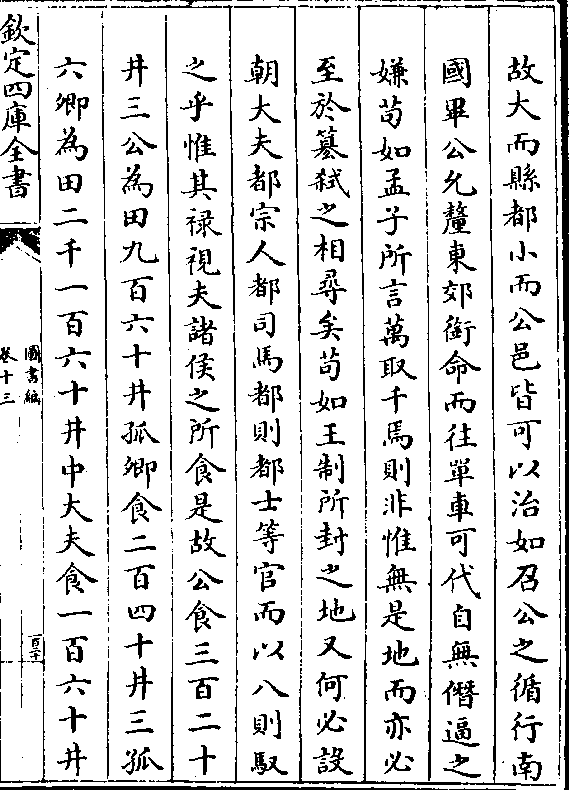 故大而縣都小而公邑皆可以治如召公之循行南
國畢公允釐東郊銜命而往單車可代自無僭逼之
嫌苟如孟子所言萬取千焉則非惟無是地而亦必
至於簒弑之相尋矣苟如王制所封之地又何必設
朝大夫都宗人都司馬都則都士等官而以八則馭
之乎惟其禄視夫諸侯之所食是故公食三百二十
井三公為田九百六十井孤卿食二百四十井三孤
六卿為田二千一百六十井中大夫食一百六十井
欽定四庫全書
圖書編
卷十三